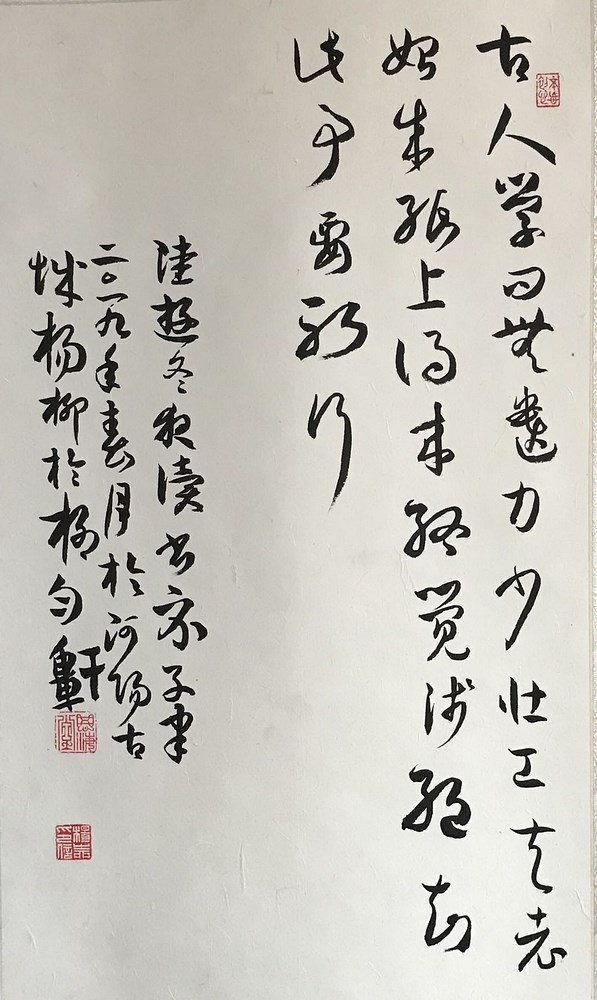 古人学问無遗力少壮工夫老
始成纸上得来终觉浅绝知
此事要躬行
陸遊冬夜读书示子聿
二〇一九年春月於河阳古
城杨柳於